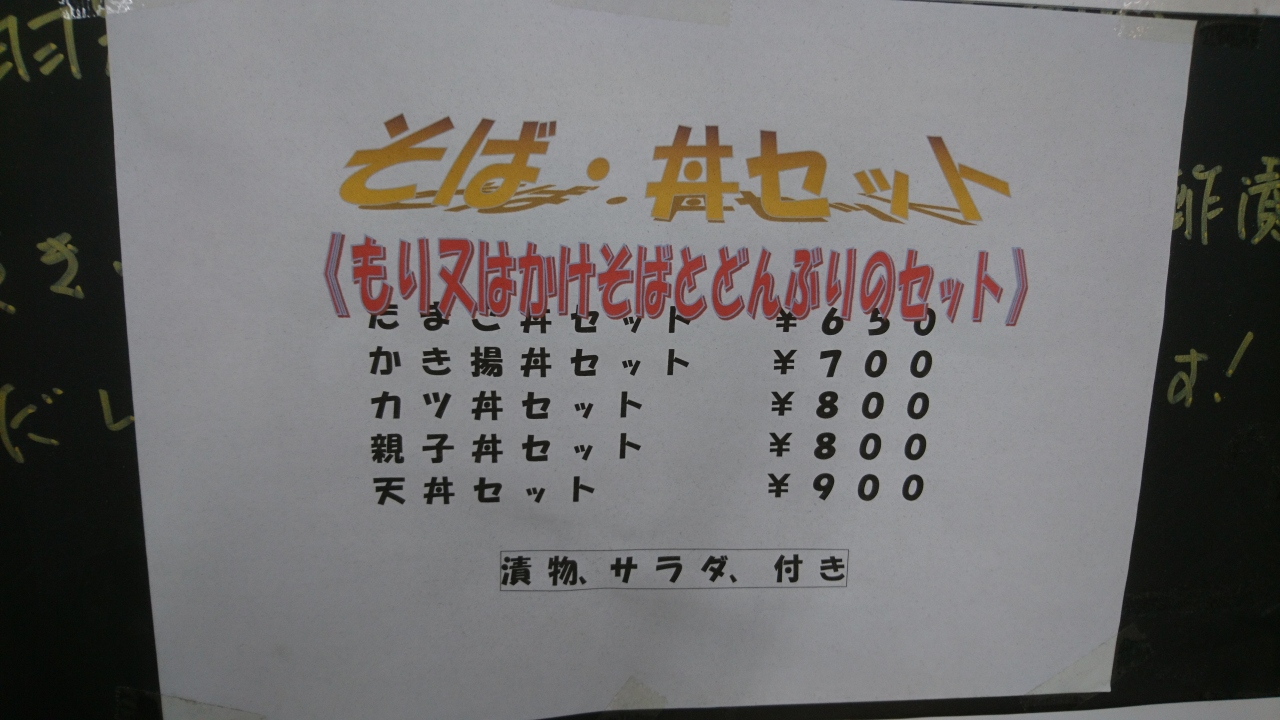 そば・丼セット
《もり又はかけそばとどんぶりのセット》
たまご丼セット ¥650
かき揚丼セット ¥700
カツ丼セット ¥800
親子丼セット ¥800
天丼セット ¥900
漬物、サラダ、付き
酢漬
す!
だし